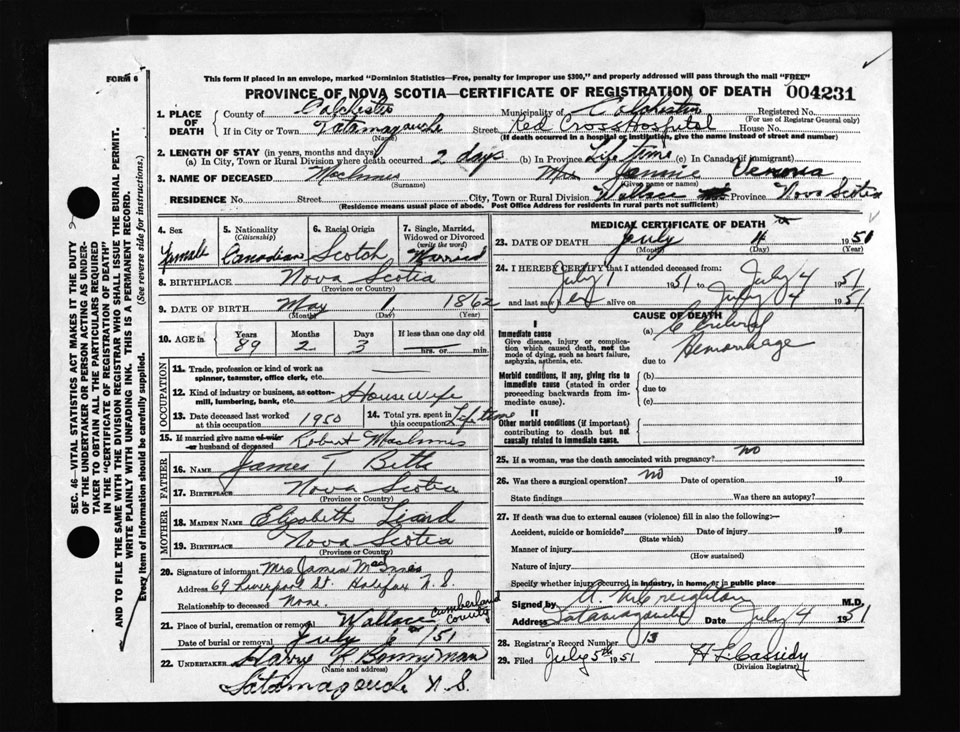 FORM 6
This form if placed in an envelope, marked "Dominion Statistics—Free, penalty for improper use $300," and properly addressed will pass through the mail "FREE"
PROVINCE OF NOVA SCOTIA—CERTIFICATE OF REGISTRATION OF DEATH 004231
1. PLACE OF DEATH County of Colchester Municipality of Colchester Registered No.
(For use of Registrar General only)
If in City or Town Tatamagouche Street Red Cross Hospital House No.
(Name) (If death occurred in a hospital or institution, give the name instead of street and number)
2. LENGTH OF STAY (in years, months and days)
(a) In City, Town or Rural Division where death occurred 2 days (b) In Province Life Time (c) In Canada (if immigrant)
3. NAME OF DECEASED MacInnes Mrs Jannie Venoria
(Surname) (Given name or names)
RESIDENCE No. Street City, Town or Rural Division Wallace Province Nova Scotia
(Residence means usual place of abode. Post Office Address for residents in rural parts not sufficient)
4. Sex Female
5. Nationality (Citizenship) Canadian
6. Racial Origin Scotch
7. Single, Married, Widowed or Divorced (write the word) Married
8. BIRTHPLACE Nova Scotia
(Province or Country)
9. DATE OF BIRTH May 1, 1862
(Month) (Day) (Year)
10. AGE in Years Months Days If less than one day old
89 2 3 hrs. or min.
OCCUPATION
11. Trade, profession or kind of work as spinner, teamster, office clerk, etc.
12. Kind of industry or business, as cotton-mill, lumbering, bank, etc. House Wife
13. Date deceased last worked at this occupation 1950
14. Total yrs. spent in this occupation Life time
15. If married give name of wife or husband of deceased Robert MacInnes
FATHER
16. NAME James T Betts
17. BIRTHPLACE Nova Scotia
(Province or Country)
MOTHER
18. MAIDEN NAME Elizabeth
19. BIRTHPLACE Nova Scotia
(Province or Country)
20. Signature of informant Mrs James MacInnes
Address 69 Liverpool St. Halifax N.S.
Relationship to deceased None.
21. Place of burial, cremation or removal Wallace Cumberland County
Date of burial or removal July 6 1951
22. UNDERTAKER Harry R Bonnyman
(Name and address)
Tatamagouche N.S.
MEDICAL CERTIFICATE OF DEATH
23. DATE OF DEATH July 4 1951
(Month) (Day) (Year)
24. I HEREBY CERTIFY that I attended deceased from:
July 1 1951 to July 4 1951
and last saw er alive on July 4 1951
CAUSE OF DEATH
I
Immediate cause
Give disease, injury or complication which caused death, not the mode of dying, such as heart failure, asphyxia, asthenia, etc.
(a) Cerebral Hemorrhage
due to
Morbid conditions, if any, giving rise to immediate cause (stated in order proceeding backwards from immediate cause).
(b)
due to
(c)
II
Other morbid conditions (if important) contributing to death but not causally related to immediate cause.
25. If a woman, was the death associated with pregnancy? no
26. Was there a surgical operation? no Date of operation 19
State findings Was there an autopsy?
27. If death was due to external causes (violence) fill in also the following:—
Accident, suicide or homicide? Date of injury 19
(State which)
Manner of injury
(How sustained)
Nature of injury
Specify whether injury occurred in industry, in home, or in public place
Signed by Creighton M.D.
Address Tatamagouche Date July 4 1951
28. Registrar's Record Number 13
29. Filed July 5th 1951 H L Cassidy
(Division Registrar)
SEC. 46—VITAL STATISTICS ACT MAKES IT THE DUTY
OF THE UNDERTAKER OR PERSON ACTING AS UNDERTAKER TO OBTAIN ALL THE PARTICULARS REQUIRED
IN THE "CERTIFICATE OF REGISTRATION OF DEATH"
AND TO FILE THE SAME WITH THE DIVISION REGISTRAR WHO SHALL ISSUE THE BURIAL PERMIT.
WRITE PLAINLY WITH UNFADING INK. THIS IS A PERMANENT RECORD.
Every item of Information should be carefully supplied. (See reverse side for instructions.)